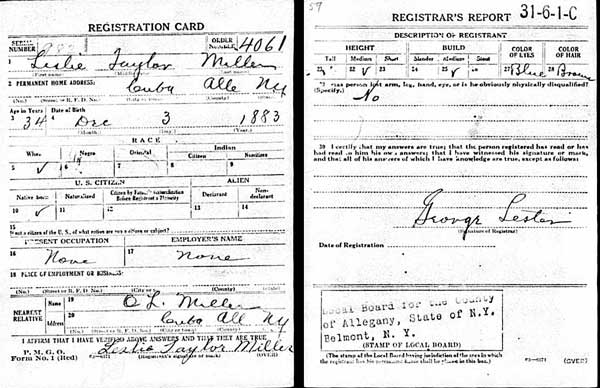 REGISTRATION CARD
SERIAL NUMBER
ORDER NUMBER 4061
1 Leslie Taylor Miller
(First name) (Middle name) (Last name)
2 PERMANENT HOME ADDRESS:
Cuba Alle Ny
(No.) (Street or R. F. D. No.) (City or town) (County) (State)
Age in Years Date of Birth
3 34 4 Dec 3 1883
(Month.) (Day.) (Year.)
RACE
White Negro Oriental Indian
Citizen Noncitizen
5 ✓ 6 7 8 9
U. S. CITIZEN ALIEN
Native Born Naturalized Citizen by Father's Naturalization Before Registrant's Majority Declarant Non-declarant
10 ✓ 11 12 13 14
15
If not a citizen of the U. S., of what nation are you a citizen or subject?
PRESENT OCCUPATION EMPLOYER'S NAME
16 None 17 none
18 PLACE OF EMPLOYMENT OR BUSINESS:
(No.) (Street or R. F. D. No.) (City or town) (County) (State)
NEAREST RELATIVE
Name 19 O L Miller
Address 20 Cuba All Ny
(No.) (Street or R. F. D. No.) (City or town) (County) (State)
I AFFIRM THAT I HAVE VERIFIED ABOVE ANSWERS AND THAT THEY ARE TRUE
P. M. G. O.
Form No. 1 (Red) Leslie Taylor Miller
(Registrant's signature or mark) (OVER)
57
REGISTRAR'S REPORT 31-6-1-C
DESCRIPTION OF REGISTRANT
HEIGHT BUILD COLOR OF EYES COLOR OF HAIR
Tall Medium Short Slender Medium Stout
21 22 ✓ 23 24 25 ✓ 26 27 Blue 28 Brown
29 Has person lost arm, leg, hand, eye, or is he obviously physically disqualified?
(Specify.) No
30 I certify that my answers are true; that the person registered has read or has
had read to him his own answers; that I have witnessed his signature or mark,
and that all of his answers of which I have knowledge are true, except as follows:
George Lester
(Signature of Registrar)
Date of Registration
Local Board for the County
of Allegany, State of N.Y.
Belmont, N. Y.
(STAMP OF LOCAL BOARD)
(The stamp of the Local Board having jurisdiction of the area in which
the registrant has his permanent home shall be placed in this box.)
(OVER)